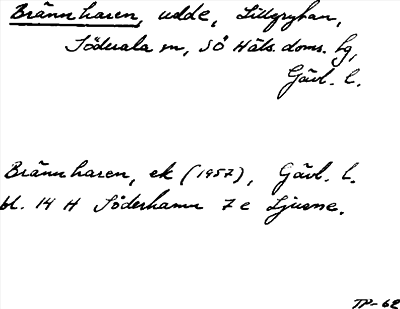 Brännharen, udde, Lillgryhan,
Söderala sn, SÖ Häls. doms. hg,
Gävl. l.
Brännharen, ek (1957), Gävl. l.
bl. 14 H Söderhamn 7 e Ljusne.
TP-62